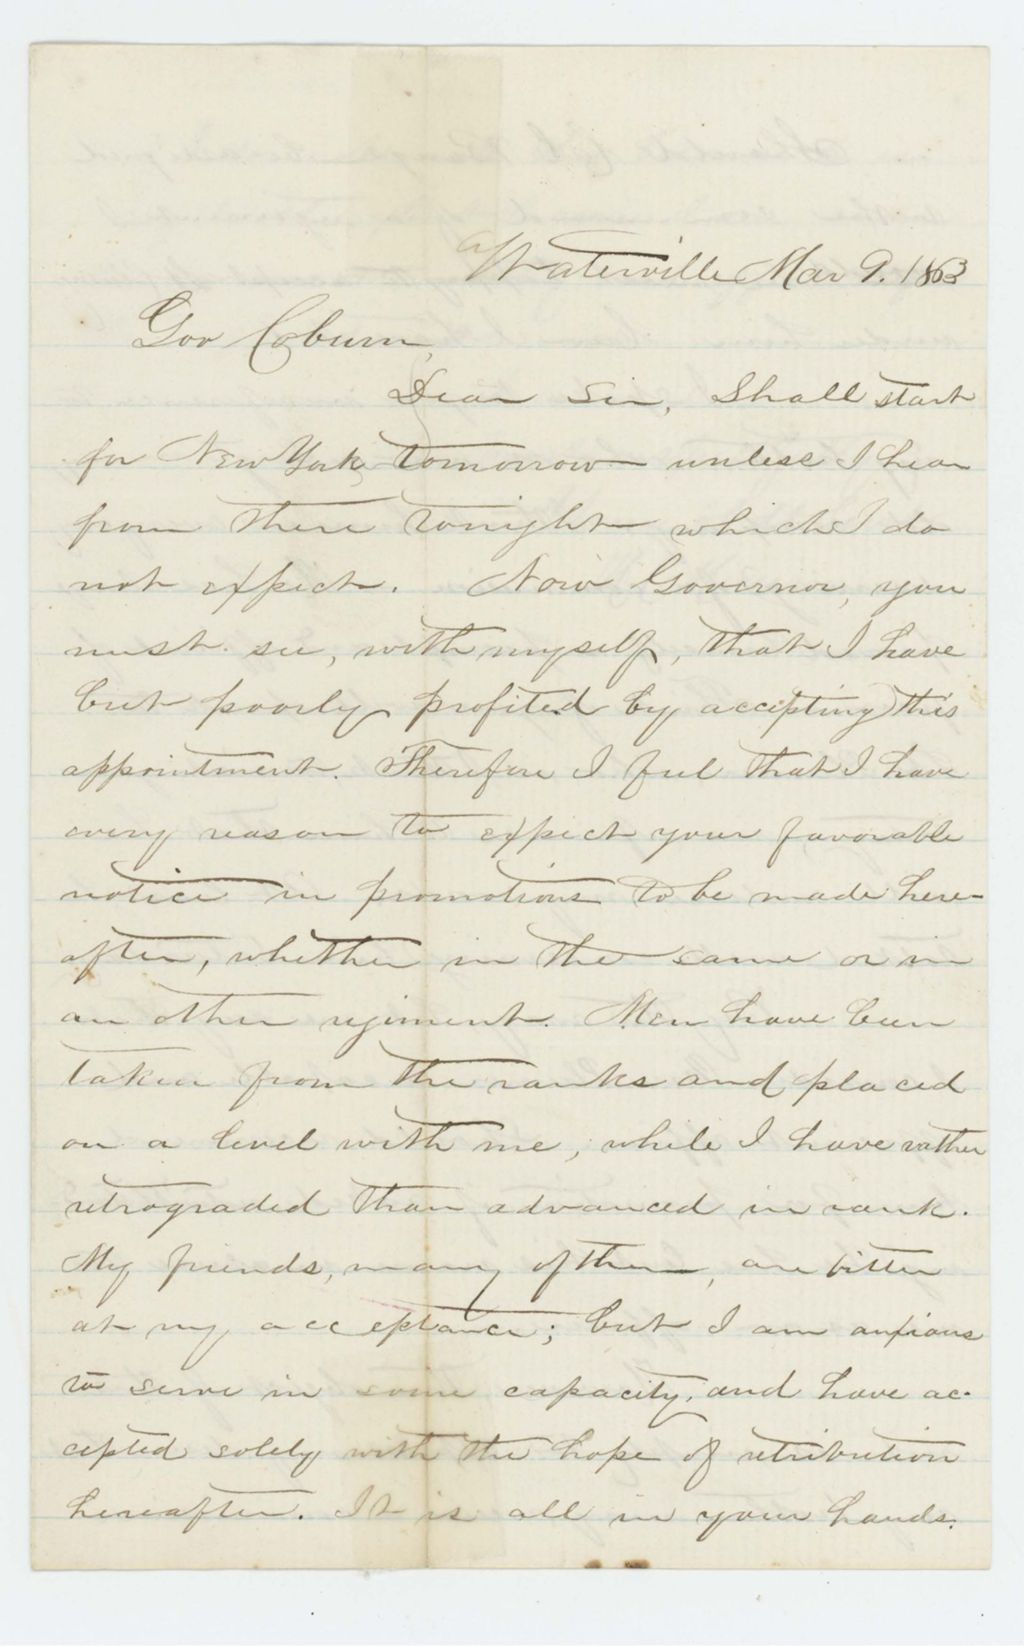 Waterville Mar 9. 1863
Gov Coburn,
Dear Sir, Shall start
for New York, tomorrow unless I hear
from there tonight which I do
not expect. Now Governor, you
must see, with myself, that I have
but poorly profited by accepting this
appointment. Therefore I feel that I have
every reason to expect your favorable
notice in promotions to be made here-
after, whether in the same or in
an other regiment. Men have been
taken from the ranks and placed
on a level with me, while I have rather
retrograded than advanced in rank.
My friends, many of them, are bitter
at my acceptance; but I am anxious
to serve in some capacity, and have ac-
cepted solely with the hope of retribution
hereafter. It is all in your hands.